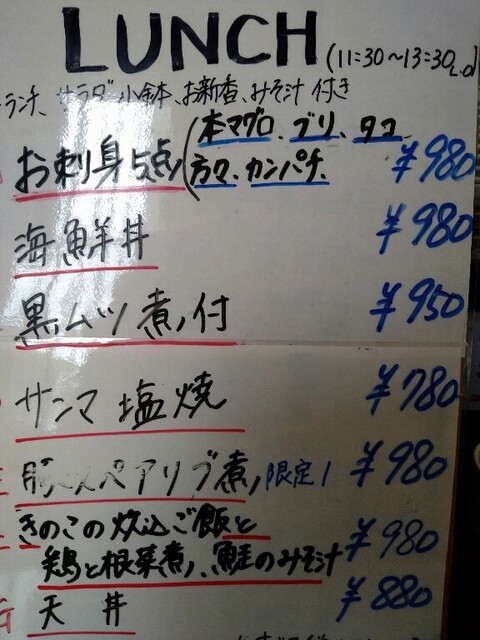 LUNCH (11:30~13:30L.O)
ランチ、サラダ、小鉢、お新香、みそ汁 付き
お刺身5点 (本マグロ、ブリ、タコ ¥980
カンパチ、
海鮮丼 ¥980
黒ムツ煮付 ¥950
サンマ塩焼 ¥780
豚スペアリブ煮 限定1 ¥980
きのこの炊込ご飯と ¥980
鶏と根菜煮、鮭のみそ汁
天丼 ¥880